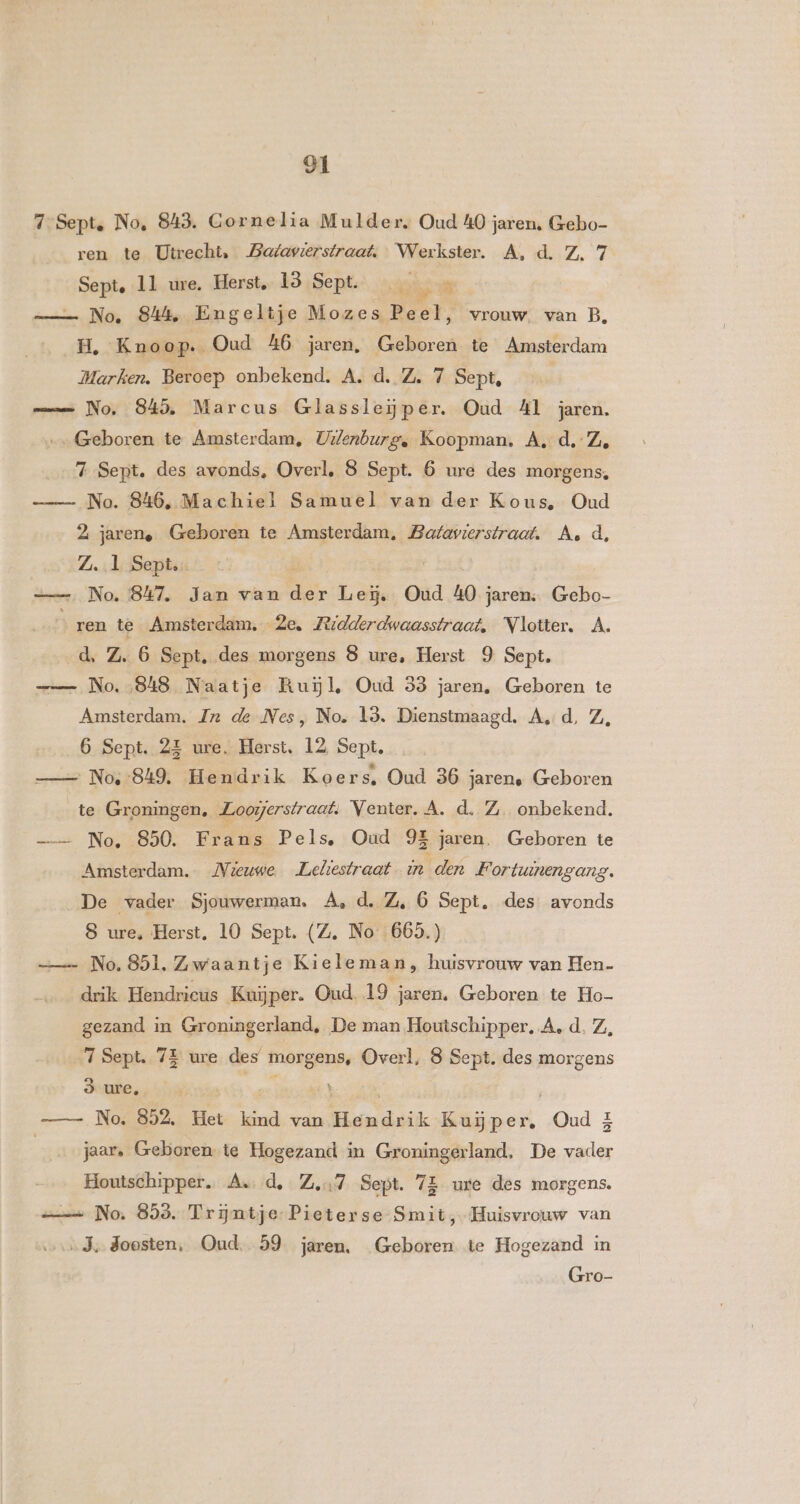 91
7 Sept. No. 843. Cornelia Mulder. Oud 40 jaren. Gebo-
ren te Utrecht. Batavierstraat. Werkster. A. d. Z. 7
Sept. 11 ure. Herst. 13 Sept.
—— No. 844. Engeltje Mozes Peel, vrouw van B.
H. Knoop. Oud 46 jaren. Geboren te Amsterdam
Marken. Beroep onbekend. A. d. Z. 7 Sept.
—— No. 845. Marcus Glassleijper. Oud 41 jaren.
Geboren te Amsterdam. Uilenburg. Koopman. A. d. Z.
7 Sept. des avonds. Overl. 8 Sept. 6 ure des morgens.
—— No. 846. Machiel Samuel van der Kous. Oud
2 jaren. Geboren te Amsterdam. Batavierstraat. A. d.
Z. 1 Sept.
—— No. 847. Jan van der Leij. Oud 40 jaren. Gebo-
ren te Amsterdam. 2e. Ridderdwaasstraat. Vlotter. A.
d. Z. 6 Sept. des morgens 8 ure. Herst 9 Sept.
—— No. 848 Naatje Ruijl. Oud 33 jaren. Geboren te
Amsterdam. In de Nes, No. 13. Dienstmaagd. A. d. Z.
6 Sept. 2½ ure. Herst. 12 Sept.
—— No. 849. Hendrik Koers. Oud 36 jaren. Geboren
te Groningen. Looijerstraat. Venter. A. d. Z. onbekend.
—— No. 850. Frans Pels. Oud 9½ jaren. Geboren te
Amsterdam. Nieuwe Leliestraat in den Fortuinengang.
De vader Sjouwerman. A. d. Z. 6 Sept. des avonds
8 ure. Herst. 10 Sept. (Z. No 665.)
—— No. 851. Zwaantje Kieleman, huisvrouw van Hen-
drik Hendricus Kuijper. Oud 19 jaren. Geboren te Ho-
gezand in Groningerland. De man Houtschipper. A. d. Z.
7 Sept. 7½ ure des morgens. Overl. 8 Sept. des morgens
3 ure.
—— No. 852. Het kind van Hendrik Kuijper. Oud ½
jaar. Geboren te Hogezand in Groningerland. De vader
Houtschipper. A. d. Z. 7 Sept. 7½ ure des morgens.
—— No. 853. Trijntje Pieterse Smit, Huisvrouw van
J. Joosten. Oud 59 jaren. Geboren te Hogezand in
Gro-